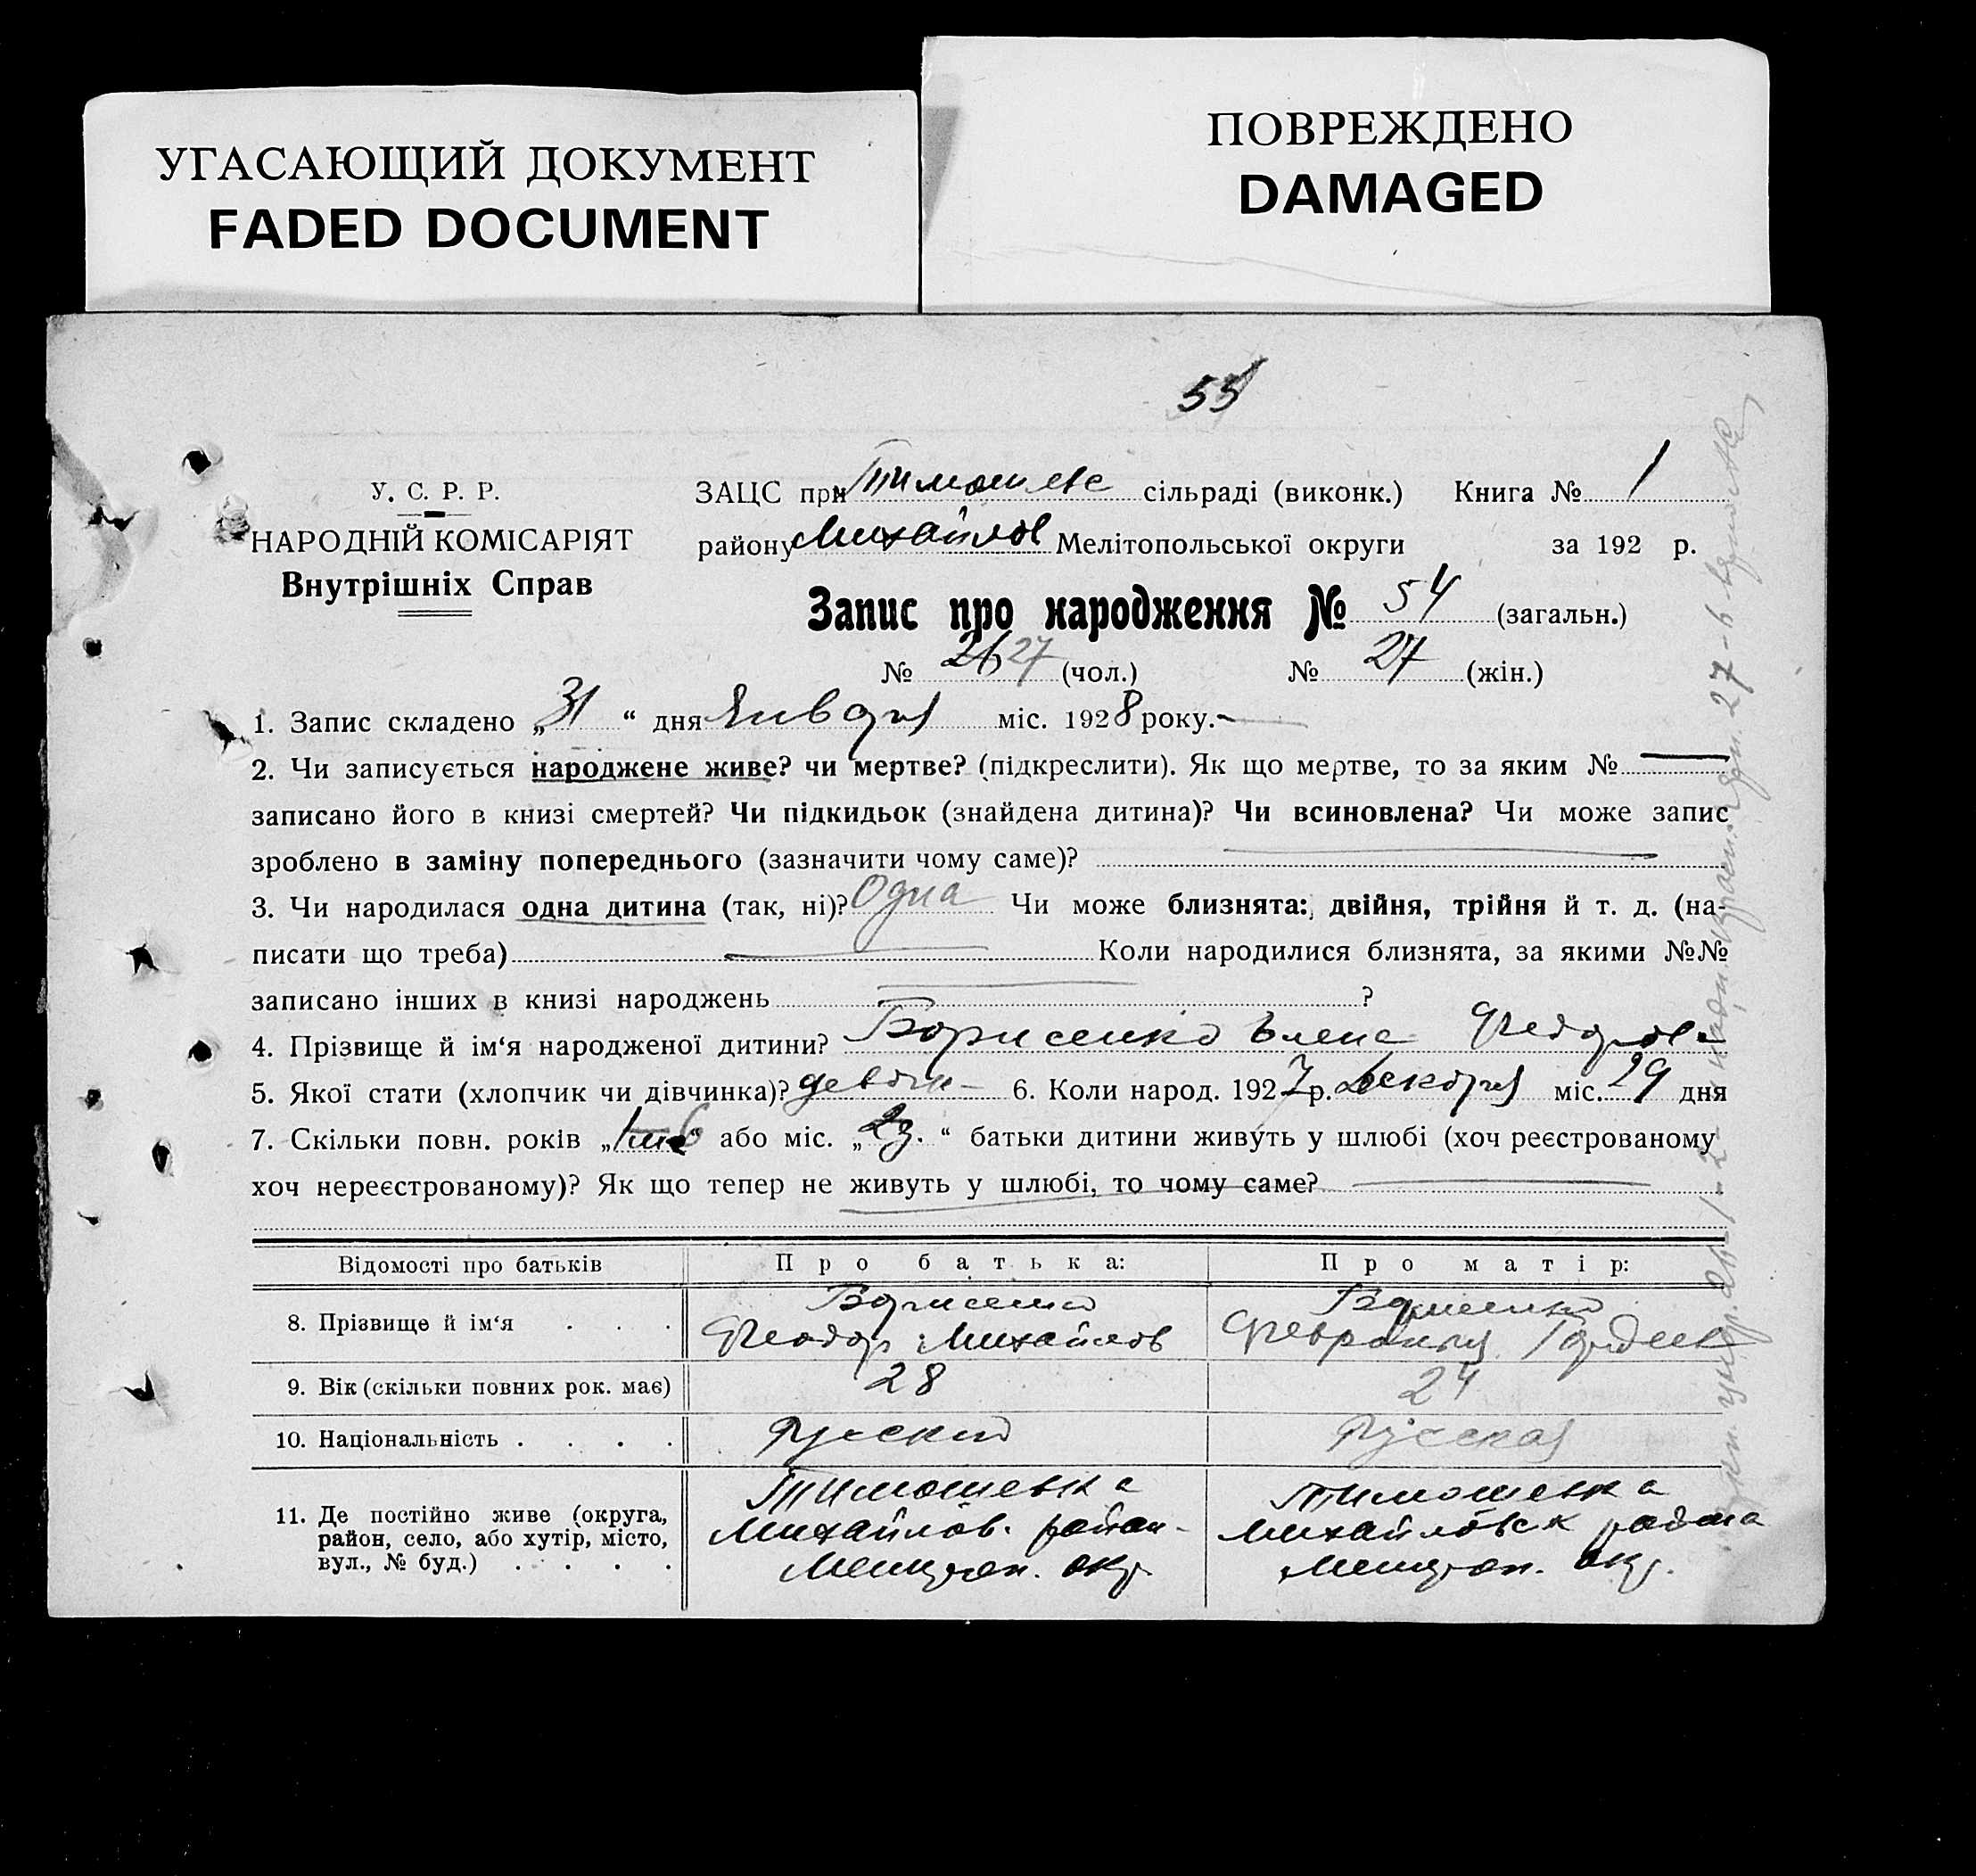 УГАСАЮЩИЙ ДОКУМЕНТ
FADED DOCUMENT
ПОВРЕЖДЕНО
DAMAGED
У. С. Р. Р.
НАРОДНІЙ КОМІСАРІЯТ
Внутрішніх Справ
ЗАЦС при Тимошевс сільраді (виконк.) Книга № 1
району Михайлов Мелітопольської округи за 192 р.
Запис про народження № 54 (загальн.)
№ 26 27 (чол.) № 27 (жін.)
1. Запис складено „31“ дня Января міс. 1928 року.
2. Чи записується народжене живе? чи мертве? (підкреслити). Як що мертве, то за яким №
записано його в книзі смертей? Чи підкидьок (знайдена дитина)? Чи всиновлена? Чи може запис
зроблено в заміну попереднього (зазначити чому саме)?
3. Чи народилася одна дитина (так, ні)? Одна Чи може близнята: двійня, трійня й т. д. (на-
писати що треба) Коли народилися близнята, за якими №№
записано інших в книзі народжень ?
4. Прізвище й ім‘я народженої дитини? Борисенко Елена Федоров
5. Якої стати (хлопчик чи дівчинка)? девочк 6. Коли народ. 1927 р. Декабря міс. 29 дня
7. Скільки повн. років „ “ або міс. „ “ батьки дитини живуть у шлюбі (хоч реєстрованому
хоч нереєстрованому)? Як що тепер не живуть у шлюбі, то чому саме?
Відомості про батьків Про батька: Про матір:
8. Прізвище й ім‘я . . . Борисенко Борисенко
Феодор Михайлов Февронья Гордеев
9. Вік (скільки повних рок. має) 28 24
10. Національність . . . . Русский Русская
11. Де постійно живе (округа,
район, село, або хутір, місто,
вул., № буд.) . . . .
Тимошевка
Михайлов. район
Мелитоп. окр.
Тимошевка
Михайловск района
Мелитоп. окр.